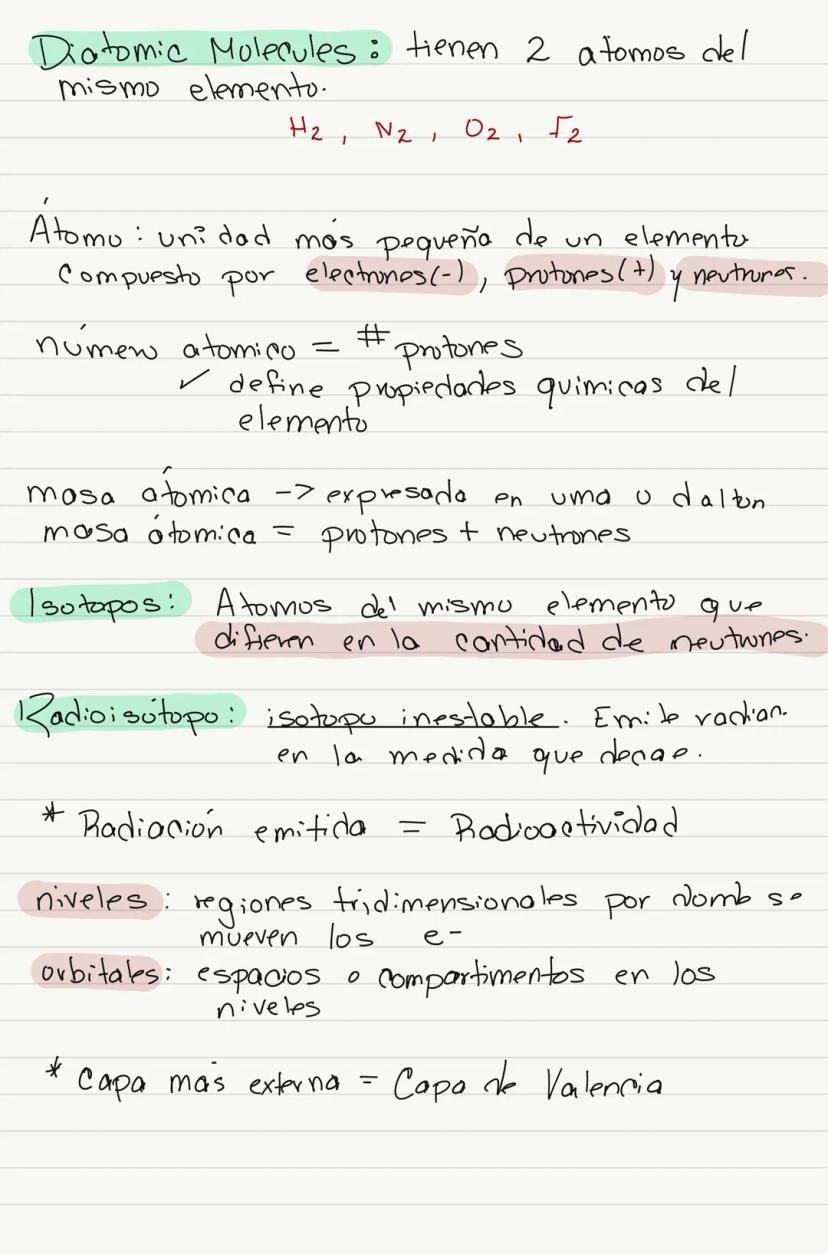 Diatomic Molecules: tienen 2 atomos del
mismo elemento.
H2, N2, O2, F2
Átomo: unidad más pequeña de un elemento
compuesto por electrones(-), protones(+) y neutrones.
número atomico = # protones
✓ define propiedades quimicas del
elemento
masa átomica -> expresada en uma o dalton
masa átomica = protones + neutrones
Isotopos: Atomos del mismo elemento que
difieren en la cantidad de neutrones.
Radioisótopo: isotopo inestable. Emite radian.
en la medida que decae.
* Radiación emitida = Radioactividad
niveles: regiones tridimensionales por se
mueven los e-
orbitales: espacios o compartimentos en los
niveles
* Capa más externa = Capa de Valencia